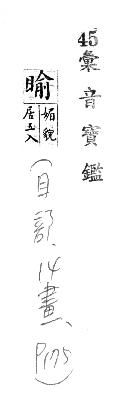 45 彙音寶鑑
睮
媚貌
居五入
(目部, 14畫, P175)